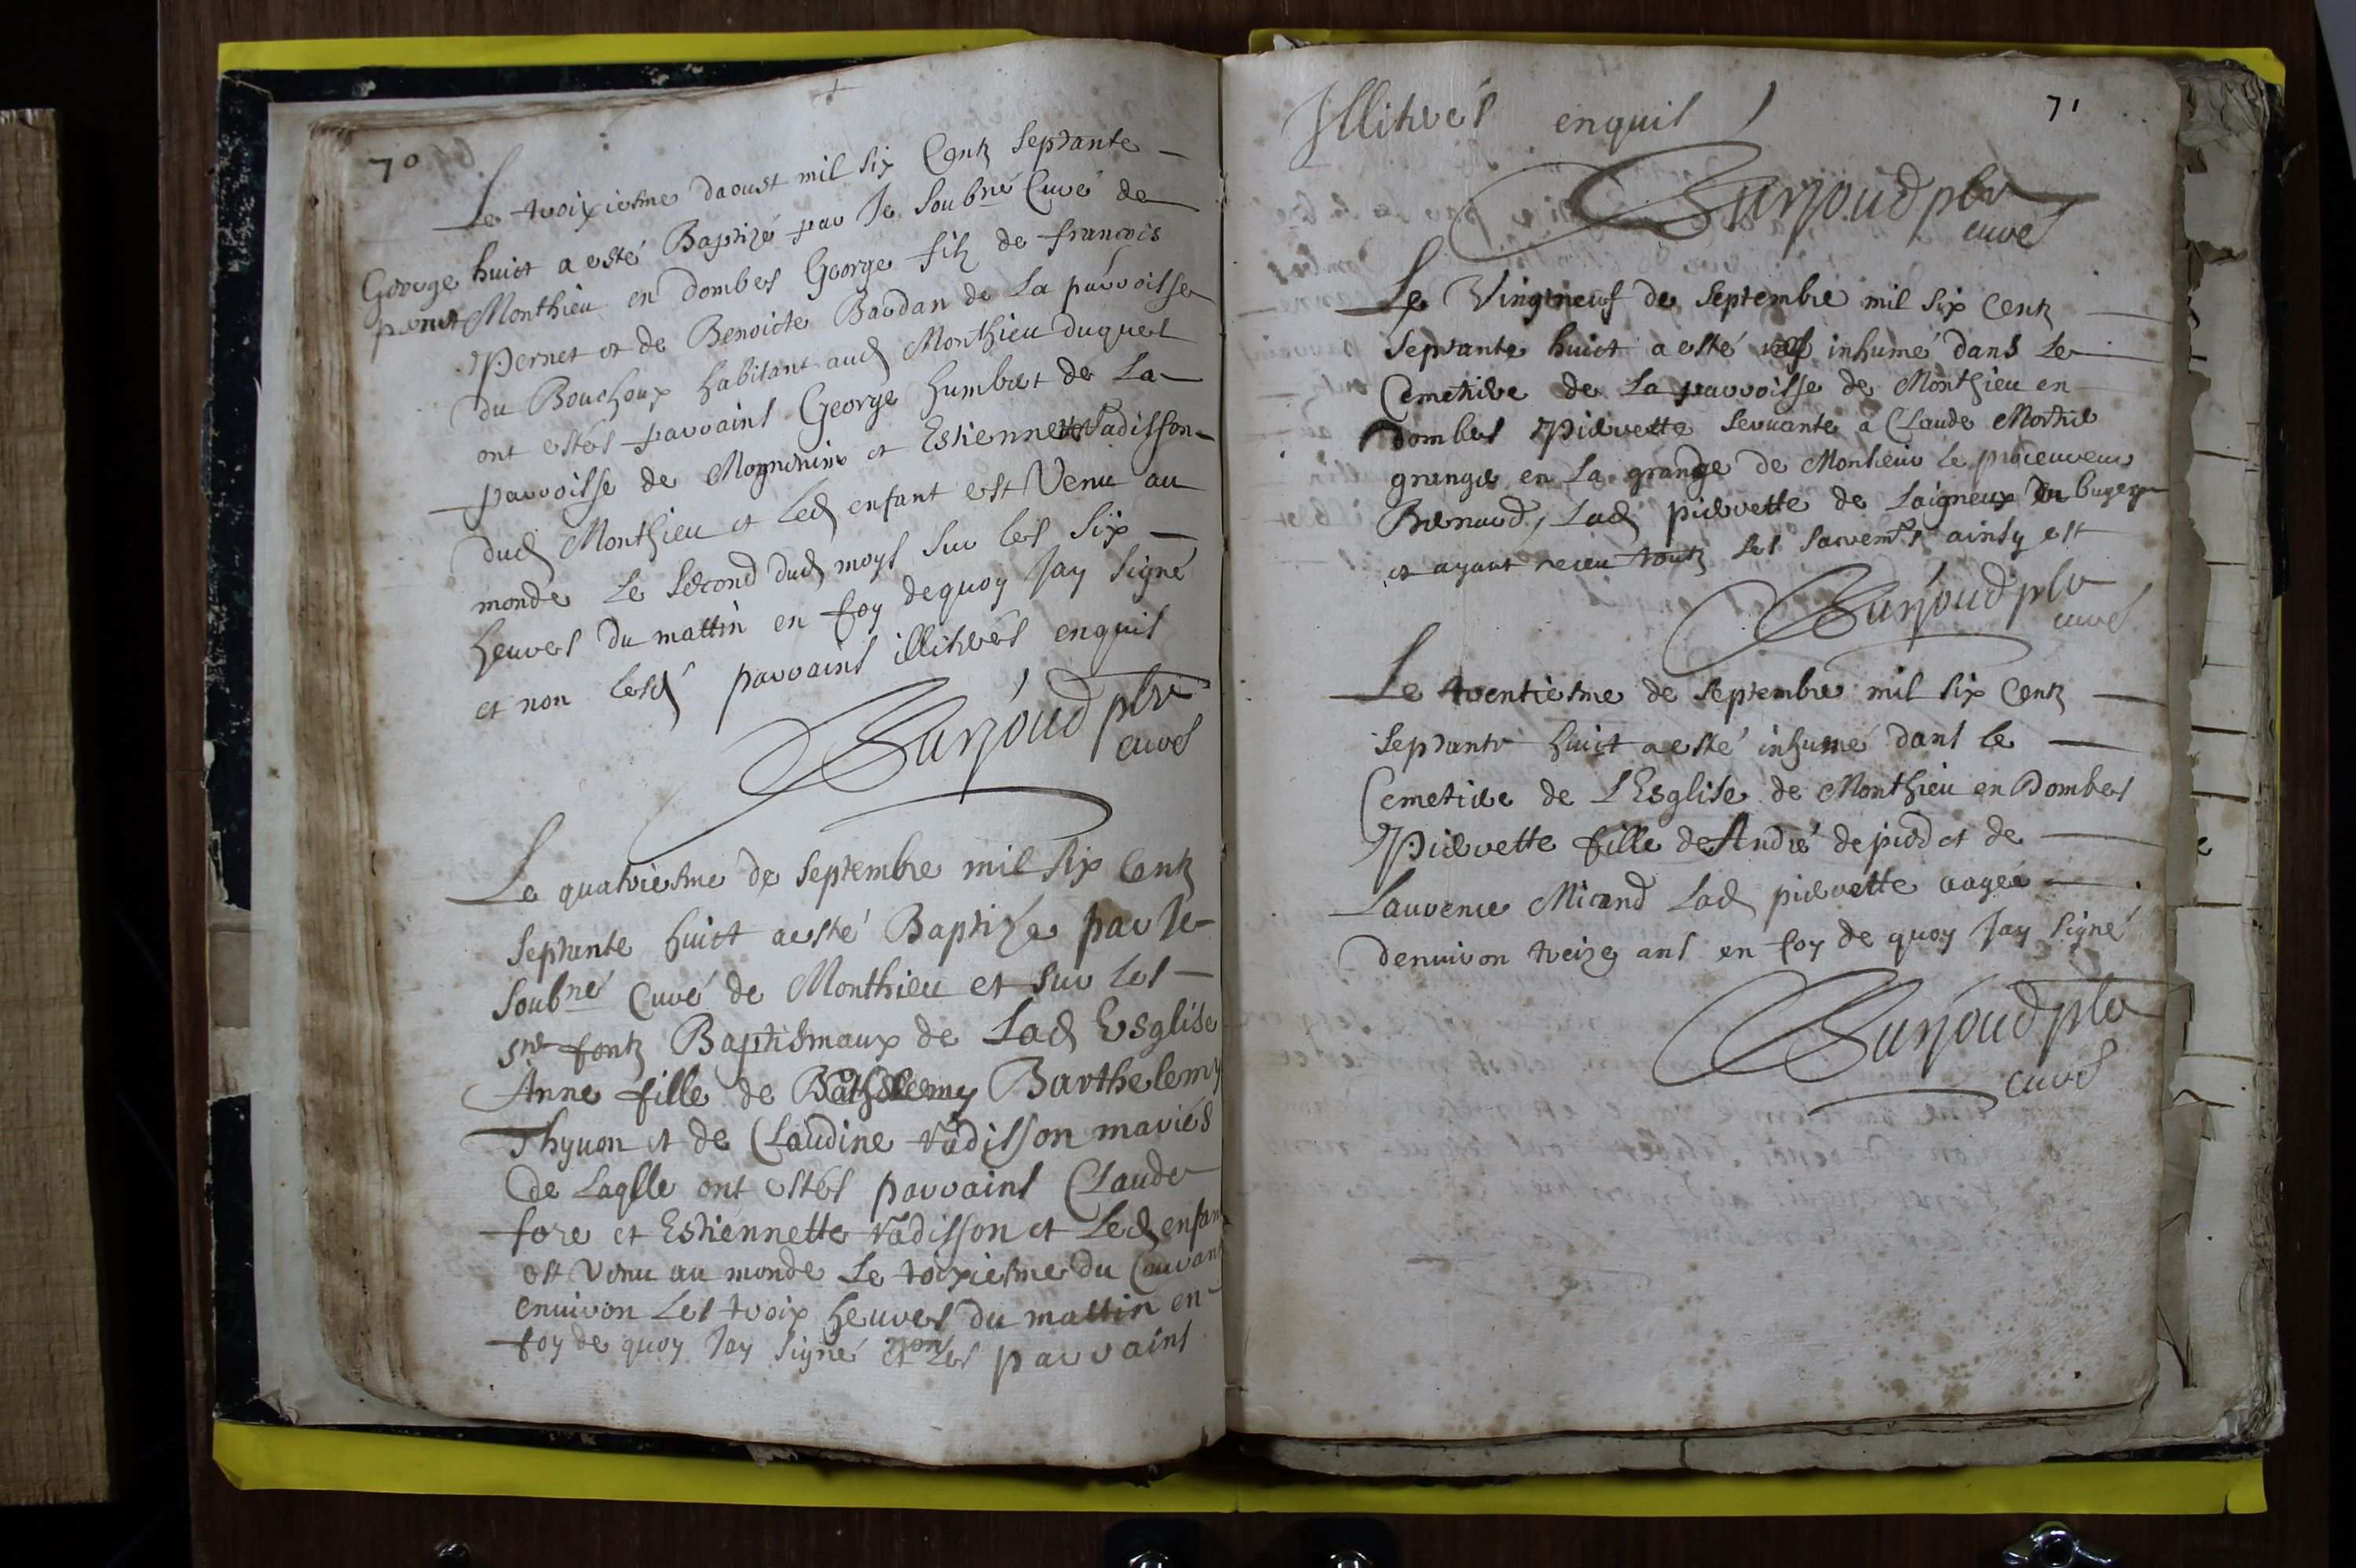 70
Le troixiesme daoust mil six Centz septante
George huict a esté Baptizé par Je soubné Curé de
pernet Monthieu en dombes George filz de francois
Pernet et de Benoicte Bardan de La parroisse
du Bouchoux habitant aud Monthieu duquel
ont estés parrains George humbert de La
parroisse de et Estiennette Vadisson
dud Monthieu et Led enfant est Venu au
monde Le second dud moys sur les six
heures du mattin en foy dequoy Jay signé
et non lesd parrains illitrés enquis
Surjoud pbr
curé
Le quatriesme de septembre mil six Centz
septante huict a esté Baptizée par Je
soubné Curé de Monthieu et sur les
sts fontz Baptismaux de Lad Esglise
Anne fille de Barthelemy
Thyuon et de Claudine Vadisson mariés
de Laqlle ont estés parrains Claude
fore et Estiennette Vadisson et Led enfant
est Venu au monde Le troixiesme du Courant
enuiron Les troix heures du mattin en
foy de quoy Jay signé et non Les parrains
71
Illitrés enquis
Surjoud pbr
curé
Le Vingtneuf de septembre mil six Centz
septante huict a esté inhumé dans Le
Cemetiere de La parroisse de Monthieu en
dombes Pierrette seruante a Claude Mortie
granger en La grange de Monsieur Le procureur
Bernard, Lad pierrette de Laigneux en bugey
et ayant receu toutz les sacremts ainsy est
Surjoud pbr
curé
Le trentiesme de septembre mil six Centz
septante huict a esté inhumé dans le
Cemetiere de LEsglise de Monthieu en Dombes
Pierrette fille de André depied et de
Laurence Micand Lad pierrette aagée
denuiron treize ans en foy de quoy Jay signé
Surjoud pbr
curé